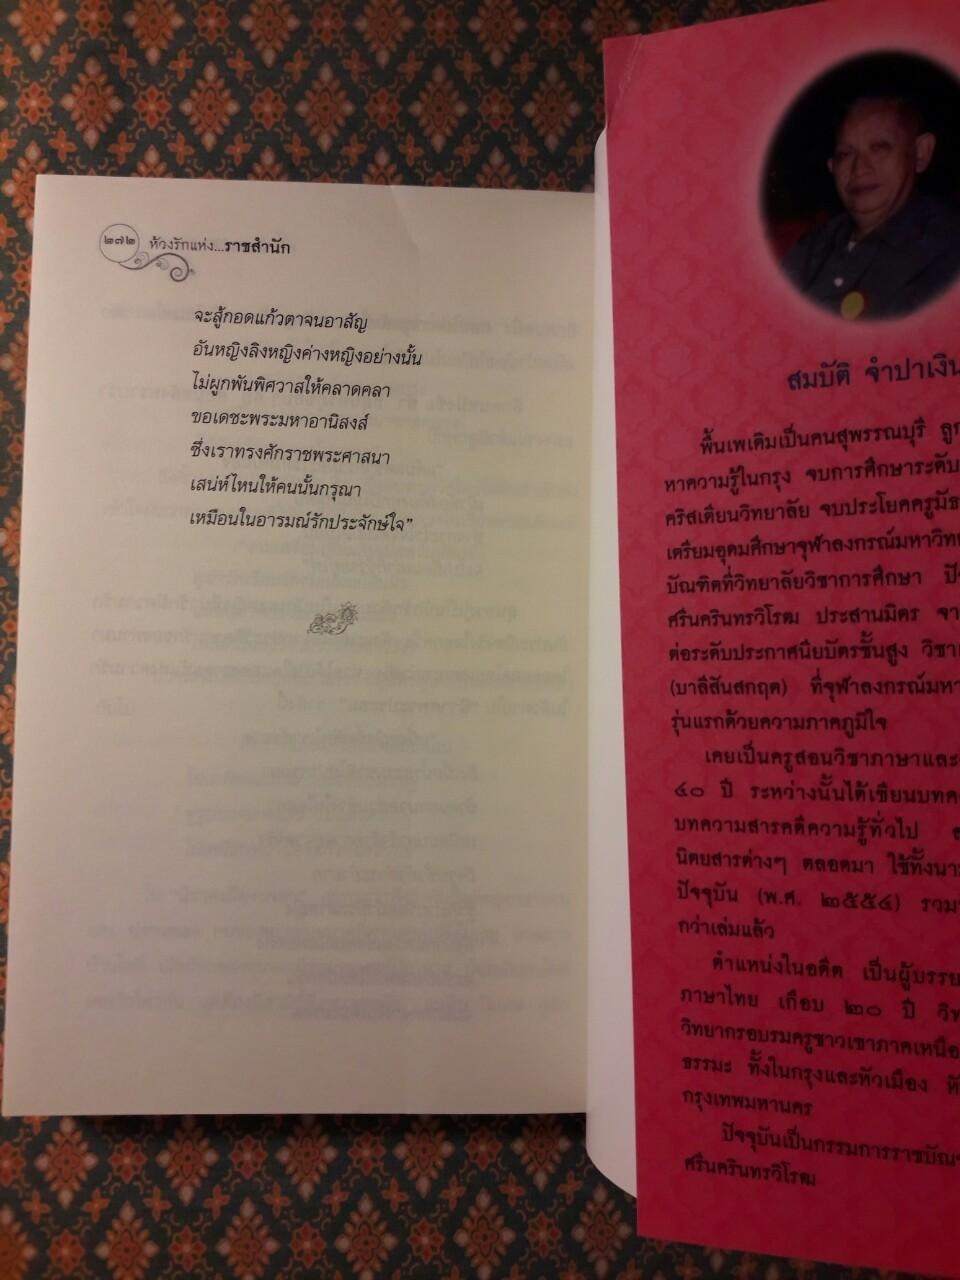 ๒๗๒ ห้วงรักแห่ง...ราชสำนัก
จะสู้กอดแก้วตาจนอาสัญ
อันหญิงลิงหญิงค่างหญิงอย่างนั้น
ไม่ผูกพันพิศวาสให้คลาดคลา
ขอเดชะพระมหาอานิสงส์
ซึ่งเราทรงศักราชพระศาสนา
เสน่ห์ไหนให้คนนั้นกรุณา
เหมือนในอารมณ์รักประจักษ์ใจ”
สมบัติ จำปาเงิน
พื้นเพเดิมเป็นคนสุพรรณบุรี
หาความรู้ในกรุง จบการศึกษาระดับ
คริสเตียนวิทยาลัย จบประโยคครูมัธ
เตรียมอุดมศึกษาจุฬาลงกรณ์มหาวิท
บัณฑิตที่วิทยาลัยวิชาการศึกษา
ศรีนครินทรวิโรฒ ประสานมิตร
ต่อระดับประกาศนียบัตรชั้นสูง
(บาลีสันสกฤต) ที่จุฬาลงกรณ์มหา
รุ่นแรกด้วยความภาคภูมิใจ
เคยเป็นครูสอนวิชาภาษาและ
๔๐ ปี ระหว่างนั้นได้เขียนบทค
บทความสารคดีความรู้ทั่วไป
นิตยสารต่างๆ ตลอดมา ใช้ทั้งนา
ปัจจุบัน (พ.ศ. ๒๕๕๔) รวม
กว่าเล่มแล้ว
ตำแหน่งในอดีต เป็นผู้บรรย
ภาษาไทย เกือบ ๒๐ ปี วิท
วิทยากรอบรมครูชาวเขาภาคเหนือ
ธรรมะ ทั้งในกรุงและหัวเมือง
กรุงเทพมหานคร
ปัจจุบันเป็นกรรมการราชบัณ
ศรีนครินทรวิโรฒ